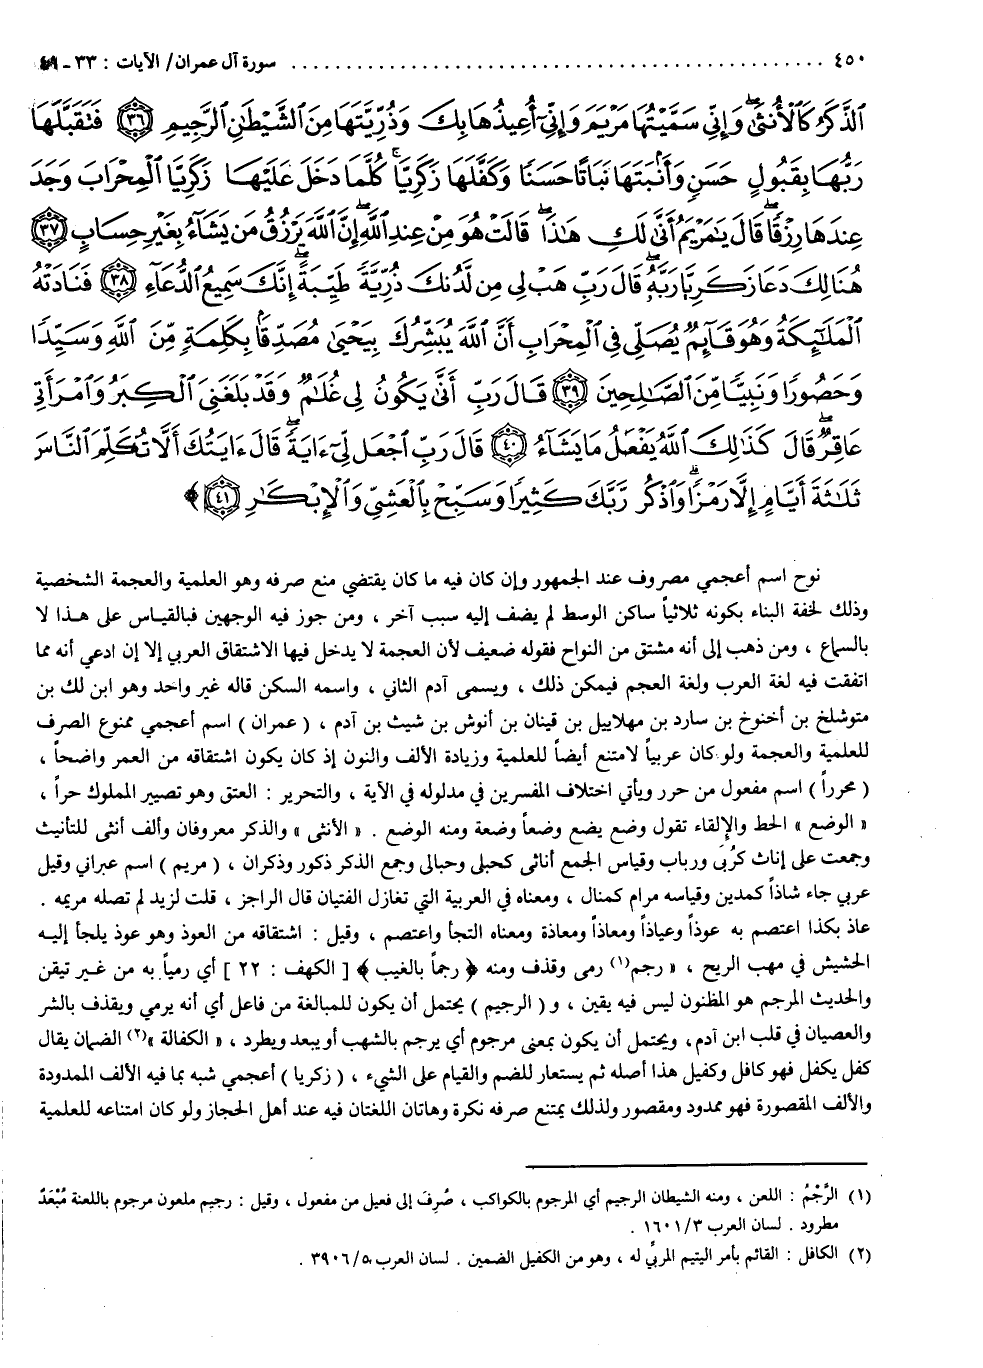 ٤٥٠ ........................................ سورة آل عمران/ الآيات : ٣٣ - ٤١
الذَّكَرُ كَالْأُنْثَىٰ وَإِنِّي سَمَّيْتُهَا مَرْيَمَ وَإِنِّي أُعِيذُهَا بِكَ وَذُرِّيَّتَهَا مِنَ الشَّيْطَانِ الرَّجِيمِ ﴿٣٦﴾ فَتَقَبَّلَهَا
رَبُّهَا بِقَبُولٍ حَسَنٍ وَأَنْبَتَهَا نَبَاتًا حَسَنًا وَكَفَّلَهَا زَكَرِيَّا كُلَّمَا دَخَلَ عَلَيْهَا زَكَرِيَّا الْمِحْرَابَ وَجَدَ
عِنْدَهَا رِزْقًا قَالَ يَا مَرْيَمُ أَنَّىٰ لَكِ هَٰذَا قَالَتْ هُوَ مِنْ عِنْدِ اللَّهِ إِنَّ اللَّهَ يَرْزُقُ مَنْ يَشَاءُ بِغَيْرِ حِسَابٍ ﴿٣٧﴾
هُنَالِكَ دَعَا زَكَرِيَّا رَبَّهُ قَالَ رَبِّ هَبْ لِي مِنْ لَدُنْكَ ذُرِّيَّةً طَيِّبَةً إِنَّكَ سَمِيعُ الدُّعَاءِ ﴿٣٨﴾ فَنَادَتْهُ
الْمَلَائِكَةُ وَهُوَ قَائِمٌ يُصَلِّي فِي الْمِحْرَابِ أَنَّ اللَّهَ يُبَشِّرُكَ بِيَحْيَىٰ مُصَدِّقًا بِكَلِمَةٍ مِنَ اللَّهِ وَسَيِّدًا
وَحَصُورًا وَنَبِيًّا مِنَ الصَّالِحِينَ ﴿٣٩﴾ قَالَ رَبِّ أَنَّىٰ يَكُونُ لِي غُلَامٌ وَقَدْ بَلَغَنِيَ الْكِبَرُ وَامْرَأَتِي
عَاقِرٌ قَالَ كَذَٰلِكَ اللَّهُ يَفْعَلُ مَا يَشَاءُ ﴿٤٠﴾ قَالَ رَبِّ اجْعَلْ لِي آيَةً قَالَ آيَتُكَ أَلَّا تُكَلِّمَ النَّاسَ
ثَلَاثَةَ أَيَّامٍ إِلَّا رَمْزًا وَاذْكُرْ رَبَّكَ كَثِيرًا وَسَبِّحْ بِالْعَشِيِّ وَالْإِبْكَارِ ﴿٤١﴾ ﴾
نوح اسم أعجمي مصروف عند الجمهور وإن كان فيه ما كان يقتضي منع صرفه وهو العلمية والعجمة الشخصية
وذلك لخفة البناء بكونه ثلاثياً ساكن الوسط لم يضف إليه سبب آخر ، ومن جوز فيه الوجهين فبالقياس على هذا لا
بالسماع ، ومن ذهب إلى أنه مشتق من النواح فقوله ضعيف لأن العجمة لا يدخل فيها الاشتقاق العربي إلا إن ادعي أنه مما
اتفقت فيه لغة العرب ولغة العجم فيمكن ذلك ، ويسمى آدم الثاني ، واسمه السكن قاله غير واحد وهو ابن لك بن
متوشلخ بن أخنوخ بن سارد بن مهلاييل بن قينان بن أنوش بن شيث بن آدم ، ( عمران ) اسم أعجمي ممنوع الصرف
للعلمية والعجمة ولو كان عربياً لامتنع أيضاً للعلمية وزيادة الألف والنون إذ كان يكون اشتقاقه من العمر واضحاً ،
( محرراً ) اسم مفعول من حرر ويأتي اختلاف المفسرين في مدلوله في الآية ، والتحرير : العتق وهو تصيير المملوك حراً ،
« الوضع » الحط والإلقاء تقول وضع يضع وضعاً وضعة ومنه الوضع . « الأنثى » والذكر معروفان وألف أنثى للتأنيث
وجمعت على إناث كرُبَى ورباب وقياس الجمع أناثى كحبلى وحبالى وجمع الذكر ذكور وذكران ، ( مريم ) اسم عبراني وقيل
عربي جاء شاذاً كمدين وقياسه مرام كمنال ، ومعناه في العربية التي تغازل الفتيان قال الراجز ، قلت لزيد لم تصله مريمه .
عاذ بكذا اعتصم به عوذاً وعياذاً ومعاذاً ومعاذة ومعناه التجأ واعتصم ، وقيل : اشتقاقه من العوذ وهو عوذ يلجأ إليه
الحشيش في مهب الريح ، « رجم(١) رمى وقذف ومنه ﴿ رجماً بالغيب ﴾ [ الكهف : ٢٢ ] أي رمياً به من غير تيقن
والحديث المرجم هو المظنون ليس فيه يقين ، و ( الرجيم ) يحتمل أن يكون للمبالغة من فاعل أي أنه يرمي ويقذف بالشر
والعصيان في قلب ابن آدم، ويحتمل أن يكون بمعنى مرجوم أي يرجم بالشهب أو يبعد ويطرد ، « الكفالة »(٢) الضمان يقال
كفل يكفل فهو كافل وكفيل هذا أصله ثم يستعار للضم والقيام على الشيء ، ( زكريا ) أعجمي شبه بما فيه الألف الممدودة
والألف المقصورة فهو ممدود ومقصور ولذلك يمتنع صرفه نكرة وهاتان اللغتان فيه عند أهل الحجاز ولو كان امتناعه للعلمية
(١) الرَّجْمُ : اللعن ، ومنه الشيطان الرجيم أي المرجوم بالكواكب ، صُرِفَ إلى فعيل من مفعول ، وقيل : رجيم ملعون مرجوم باللعنة مُبْعَدٌ
مطرود . لسان العرب ١٦٠١/٣ .
(٢) الكافل : القائم بأمر اليتيم المربِّي له ، وهو من الكفيل الضمين . لسان العرب ٣٩٠٦/٥ .